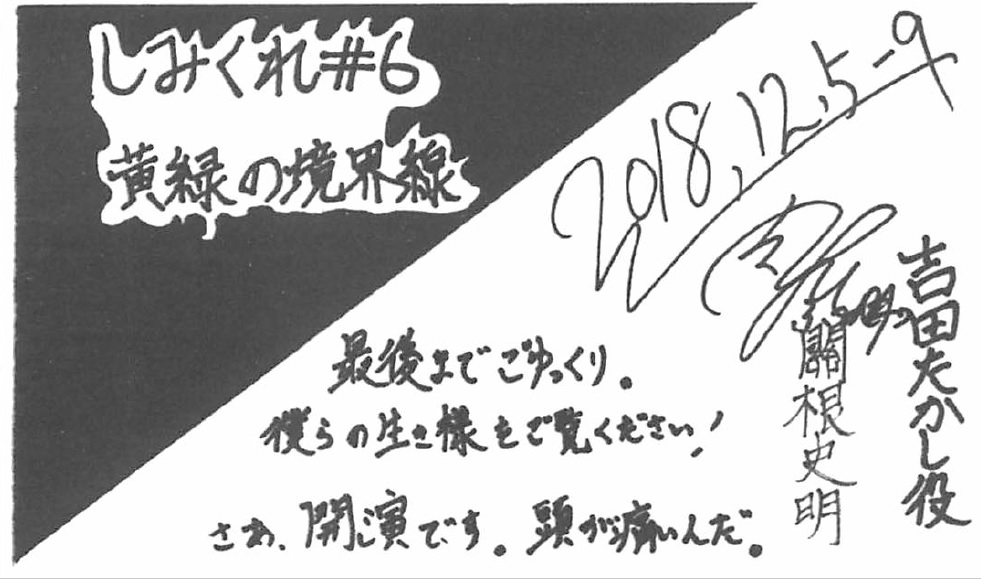 しみくれ#6
黄緑の境界線
2018,12,5-9
吉田たかし役
關根史明
最後までごゆっくり。
僕らの生き様をご覧ください!
さあ、開演です。頭が痛いんだ。